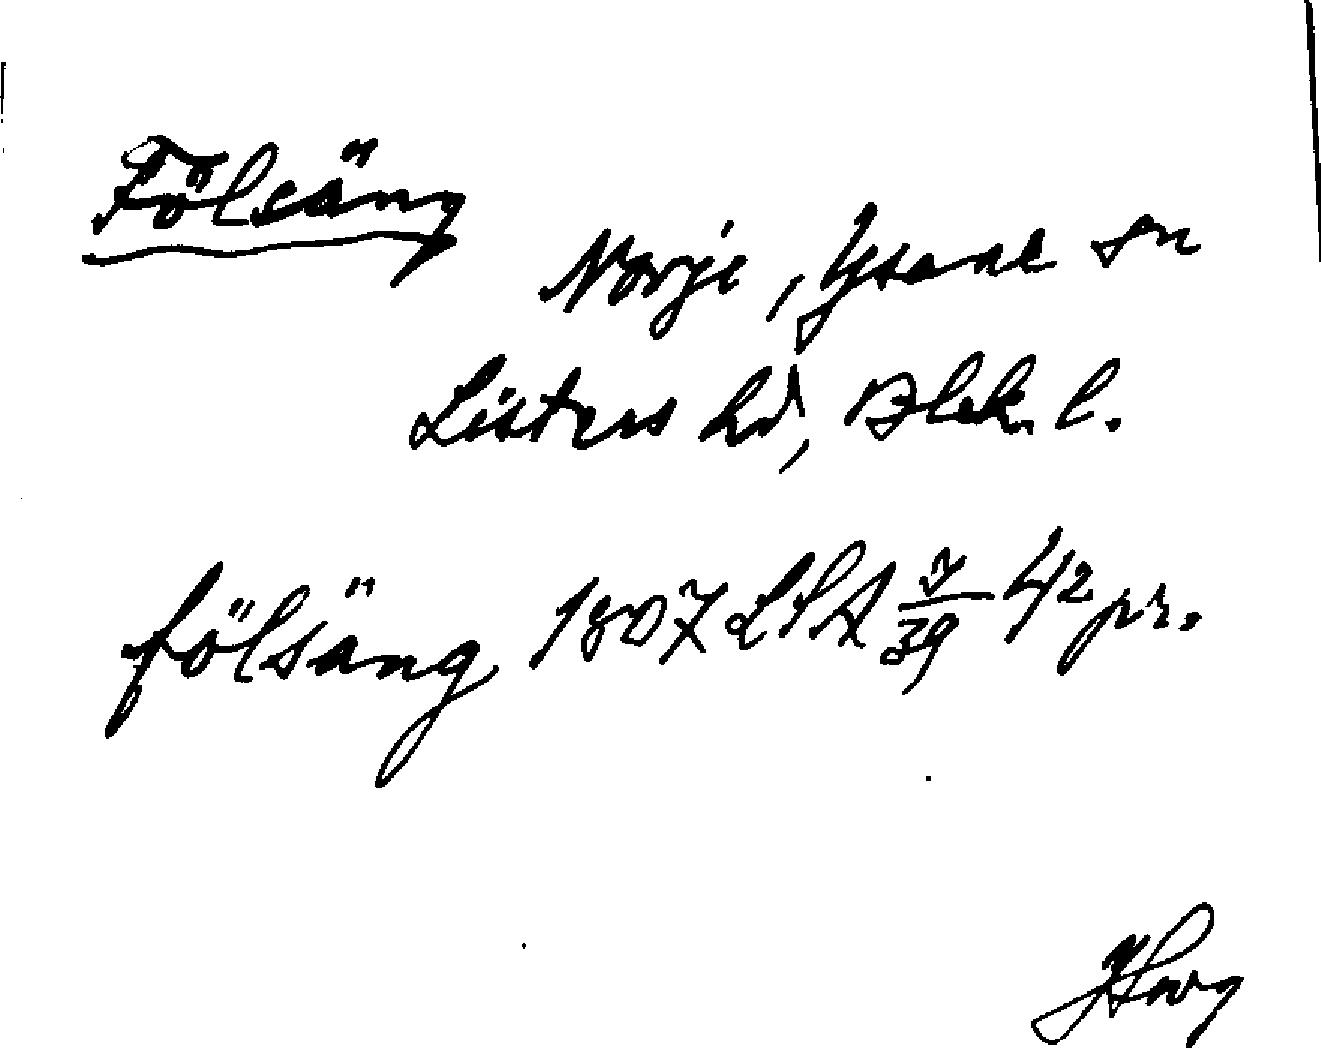 Fölsäng
Norje, Ysane sn
Listers hd, Blek. l.
fölsäng 1807 LSA 39 42 pr.